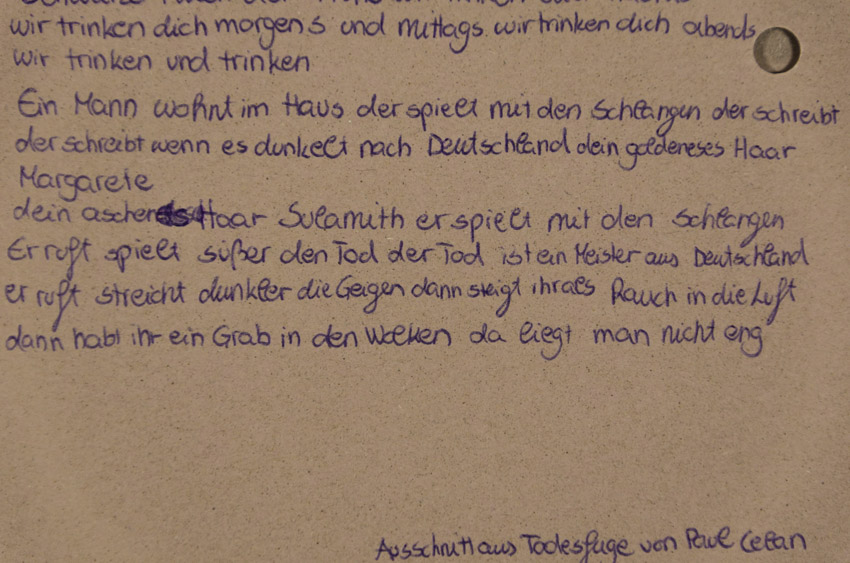 wir trinken dich morgens und mittags wir trinken dich abends
wir trinken und trinken
Ein Mann wohnt im Haus der spielt mit den Schlangen der schreibt
der schreibt wenn es dunkelt nach Deutschland dein goldeneses Haar
Margarete
dein aschenes Haar Sulamith er spielt mit den Schlangen
Er ruft spielt süßer den Tod der Tod ist ein Meister aus Deutschland
er ruft streicht dunkler die Geigen dann steigt ihr als Rauch in die Luft
dann habt ihr ein Grab in den Wolken da liegt man nicht eng
Ausschnitt aus Todesfuge von Paul Celan